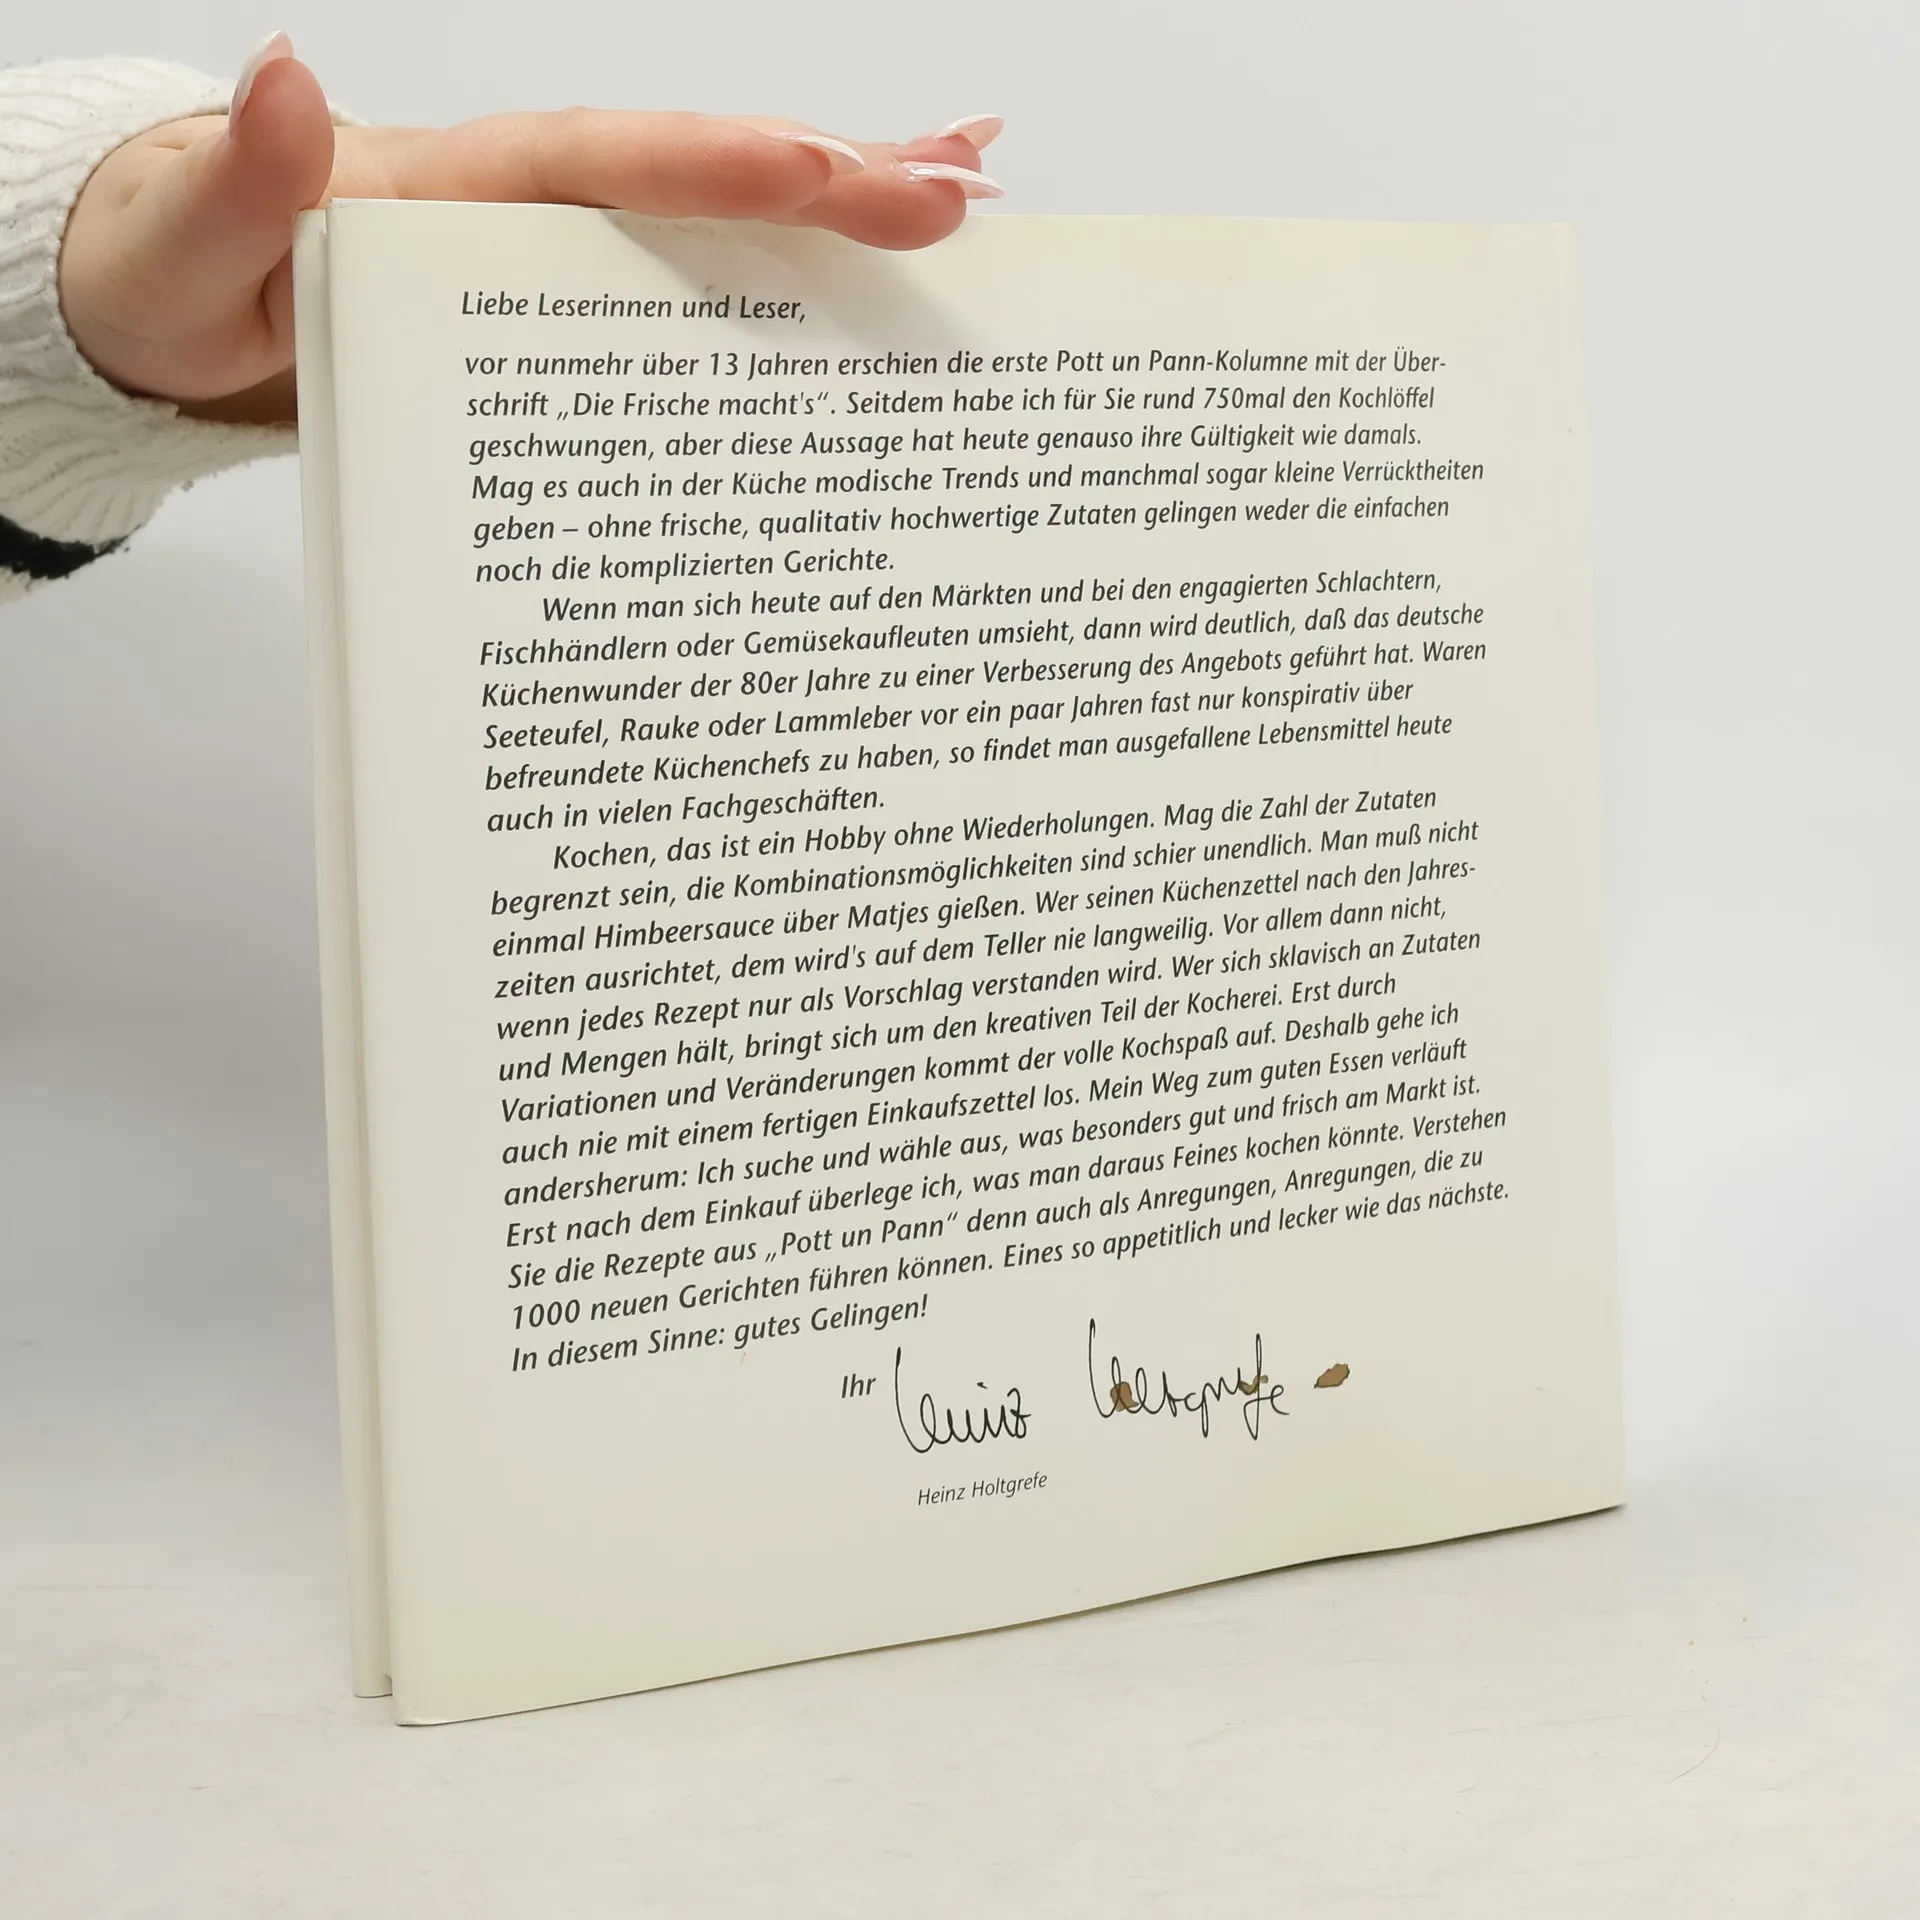 Liebe Leserinnen und Leser,
vor nunmehr über 13 Jahren erschien die erste Pott un Pann-Kolumne mit der Über-
schrift „Die Frische macht's“. Seitdem habe ich für Sie rund 750mal den Kochlöffel
geschwungen, aber diese Aussage hat heute genauso ihre Gültigkeit wie damals.
Mag es auch in der Küche modische Trends und manchmal sogar kleine Verrücktheiten
geben – ohne frische, qualitativ hochwertige Zutaten gelingen weder die einfachen
noch die komplizierten Gerichte.
Wenn man sich heute auf den Märkten und bei den engagierten Schlachtern,
Fischhändlern oder Gemüsekaufleuten umsieht, dann wird deutlich, daß das deutsche
Küchenwunder der 80er Jahre zu einer Verbesserung des Angebots geführt hat. Waren
Seeteufel, Rauke oder Lammleber vor ein paar Jahren fast nur konspirativ über
befreundete Küchenchefs zu haben, so findet man ausgefallene Lebensmittel heute
auch in vielen Fachgeschäften.
Kochen, das ist ein Hobby ohne Wiederholungen. Mag die Zahl der Zutaten
begrenzt sein, die Kombinationsmöglichkeiten sind schier unendlich. Man muß nicht
einmal Himbeersauce über Matjes gießen. Wer seinen Küchenzettel nach den Jahres-
zeiten ausrichtet, dem wird's auf dem Teller nie langweilig. Vor allem dann nicht,
wenn jedes Rezept nur als Vorschlag verstanden wird. Wer sich sklavisch an Zutaten
und Mengen hält, bringt sich um den kreativen Teil der Kocherei. Erst durch
Variationen und Veränderungen kommt der volle Kochspaß auf. Deshalb gehe ich
auch nie mit einem fertigen Einkaufszettel los. Mein Weg zum guten Essen verläuft
andersherum: Ich suche und wähle aus, was besonders gut und frisch am Markt ist.
Erst nach dem Einkauf überlege ich, was man daraus Feines kochen könnte. Verstehen
Sie die Rezepte aus „Pott un Pann“ denn auch als Anregungen, Anregungen, die zu
1000 neuen Gerichten führen können. Eines so appetitlich und lecker wie das nächste.
In diesem Sinne: gutes Gelingen!
Ihr Heinz Holtgrefe
Heinz Holtgrefe